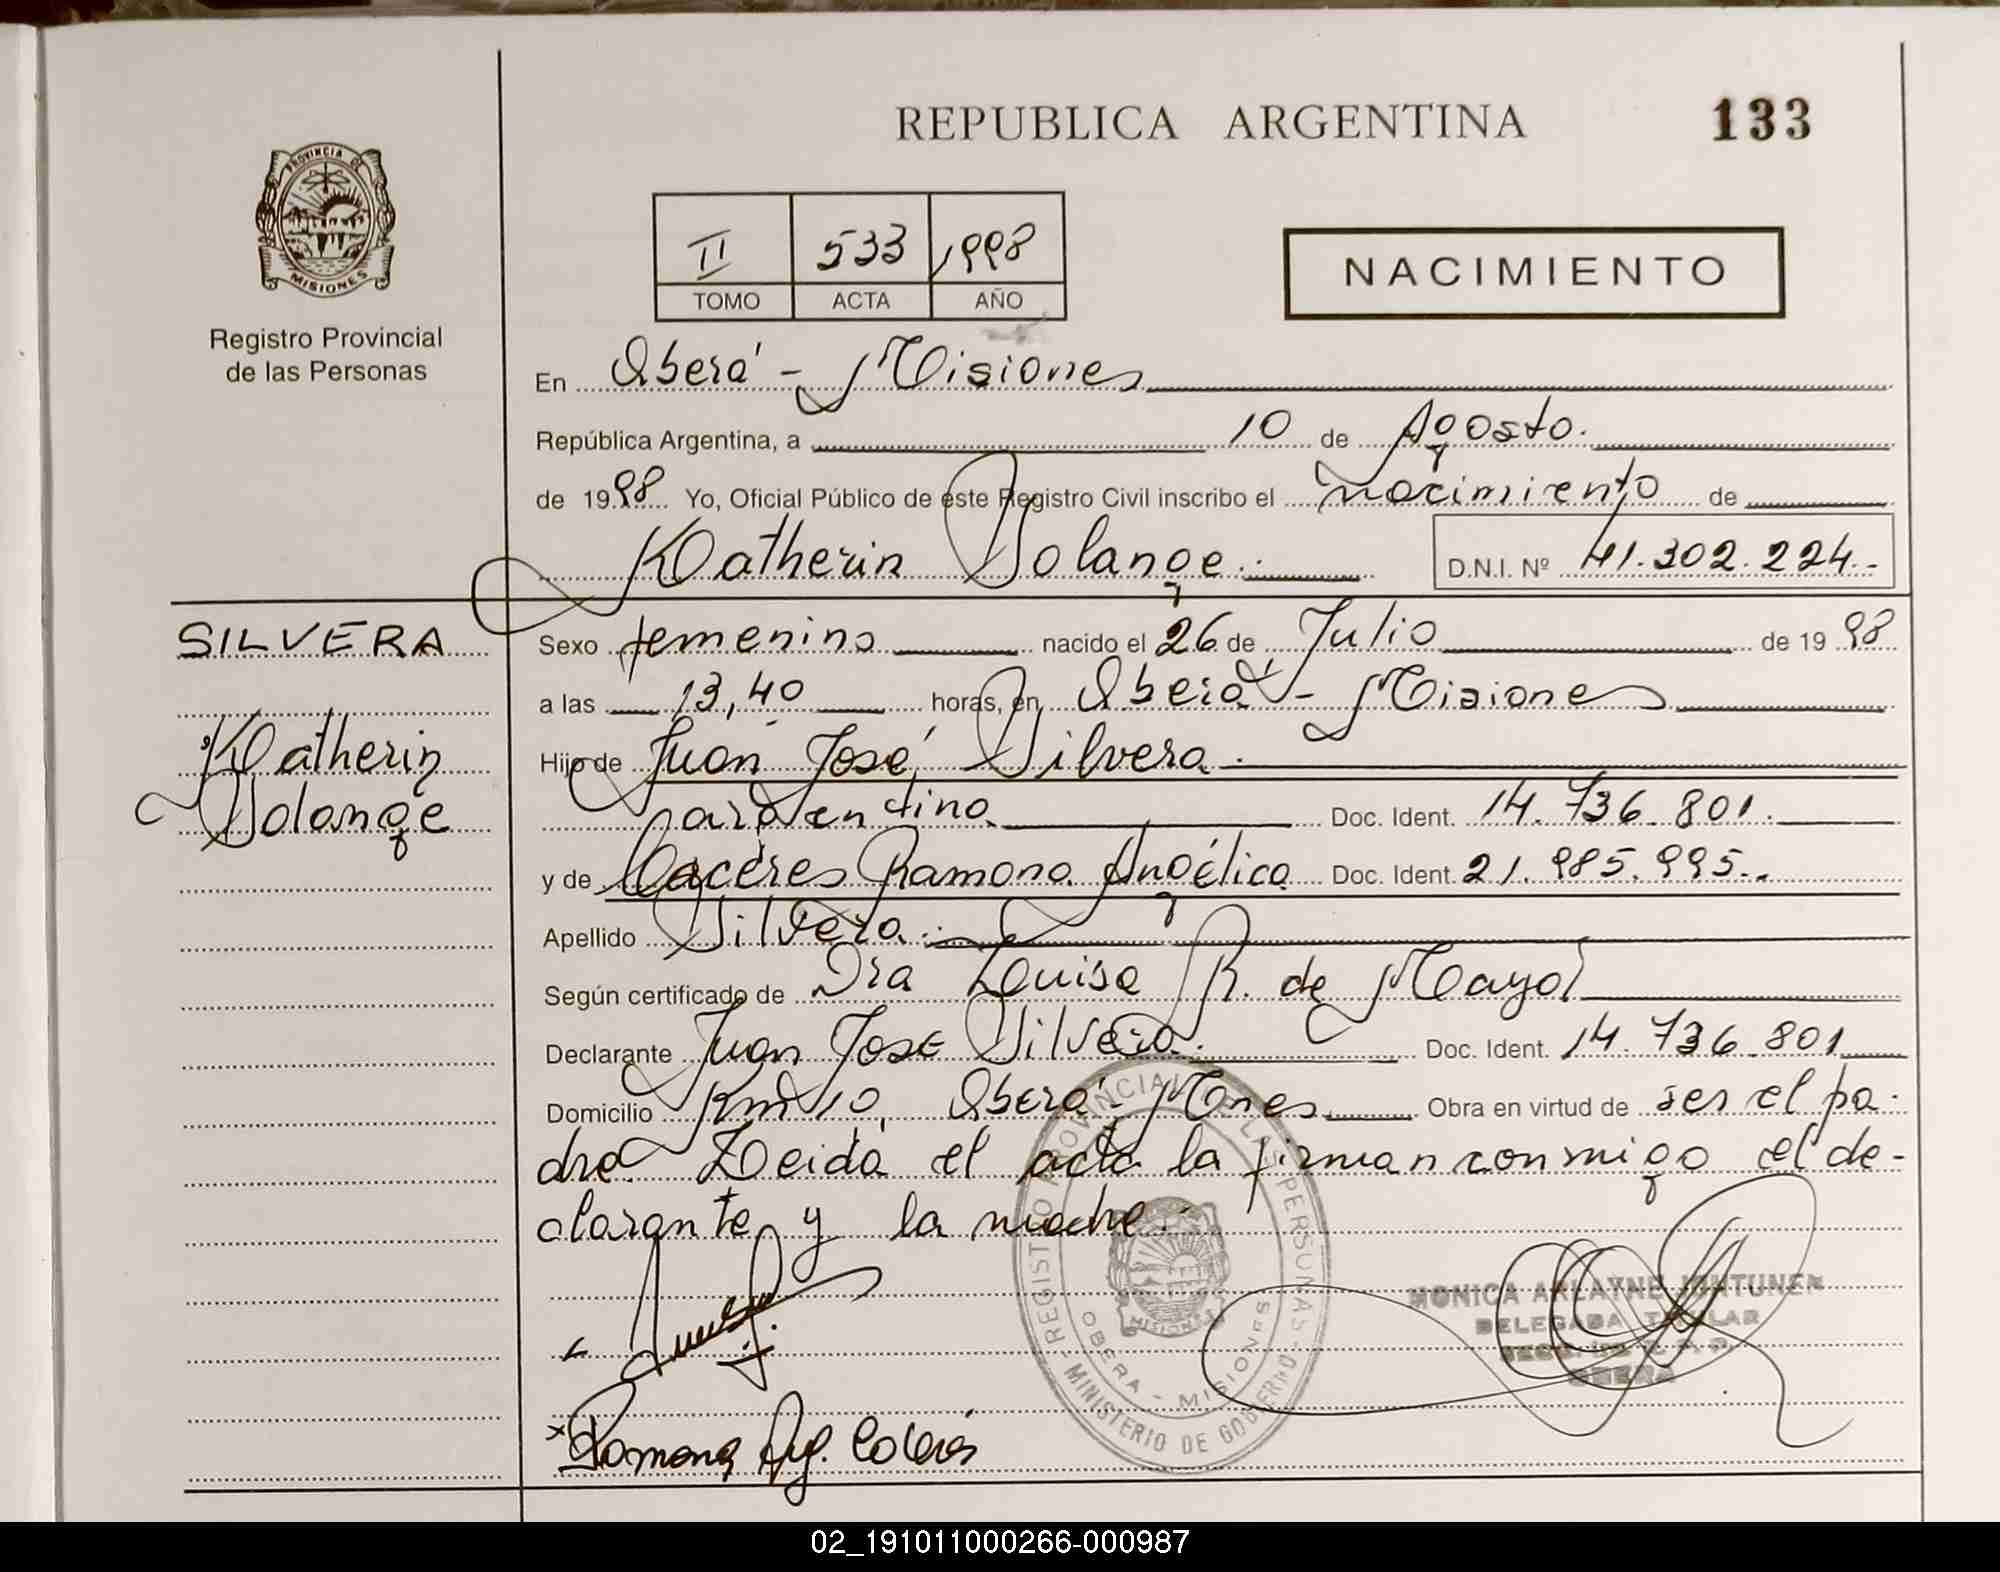 REPUBLICA ARGENTINA
133
PROVINCIA DE
MISIONES
Registro Provincial
de las Personas
II 533 1998
TOMO ACTA AÑO
NACIMIENTO
En Oberá - Misiones
República Argentina, a 10 de Agosto.
de 1998 Yo, Oficial Público de este Registro Civil inscribo el nacimiento de
Katherin Solange. D.N.I. Nº 41.302.224.-
SILVERA
Katherin
Solange
Sexo femenino nacido el 26 de Julio de 1998
a las 13,40 horas, en Oberá - Misiones
Hijo de Juan José Silvera.
argentino Doc. Ident. 14.736.801.
y de Caceres Ramona Angélica Doc. Ident. 21.985.995..
Apellido Silvera.
Según certificado de Dra Luisa R. de Mayol
Declarante Juan Jose Silvera. Doc. Ident. 14.736.801
Domicilio Km 10, Oberá - Mnes Obra en virtud de ser el pa-
dre. Leida el acta la firman conmigo el de-
clarante y la madre.
REGISTRO PROVINCIAL DE LAS PERSONAS
MINISTERIO DE GOBIERNO
OBERA - MISIONES
MISIONES
MONICA ARLAYNE
DELEGADA TITULAR
OBERA
Ramona Ag. Caceres
02_191011000266-000987